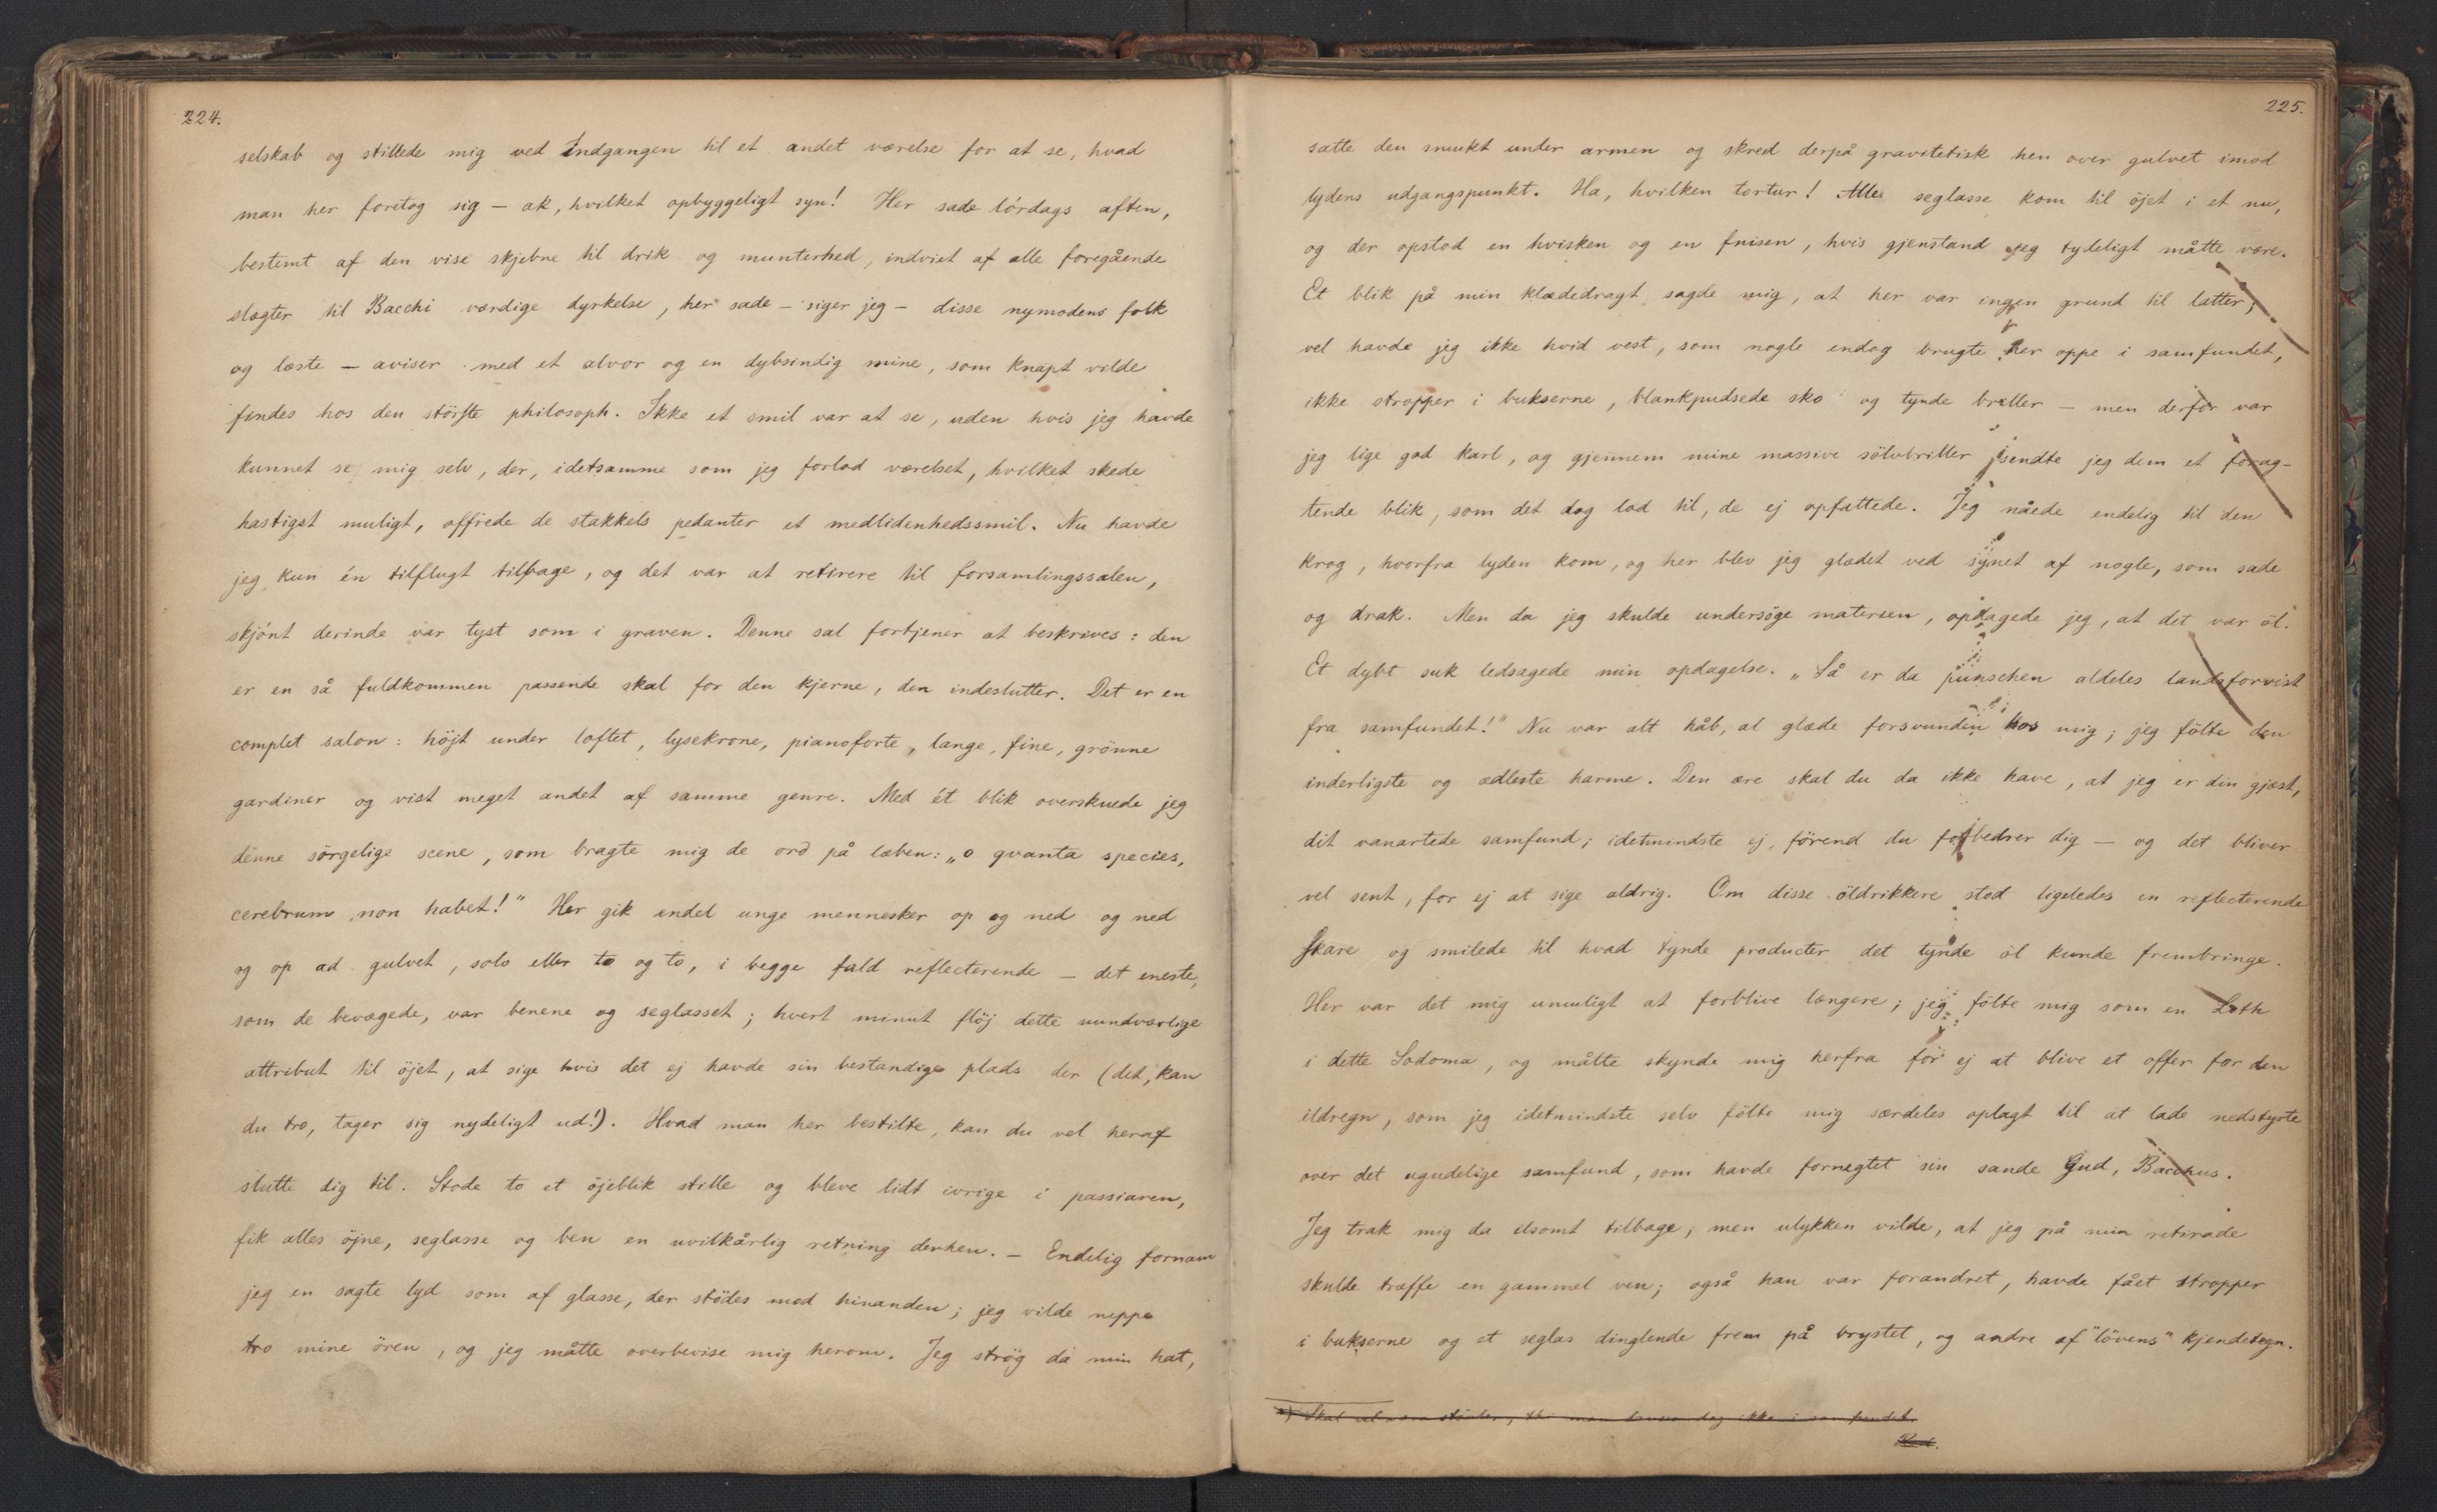 224.
selskab og stillede mig ved Indgangen til et andet værelse for at se, hvad
man her foretog sig – ak, hvilket opbyggeligt syn! Her sade lördags aften,
bestemt af den vise skjebne til drik og munterhed, indviet af alle foregående
slægter til Bacchi værdige dyrkelse, her sade – siger jeg – disse nymodens folk
og læste – aviser med et alvor og en dybsindig mine, som knapt vilde
findes hos den störste philosoph. Ikke et smil var at se, uden hvis jeg havde
kunnet se mig selv, der, idetsamme som jeg forlod værelset, hvilket skede
hastigst muligt, offrede de stakkels pedanter et medlidenhedssmil. Nu havde
jeg kun én tilflugt tilbage, og det var at retirere til forsamlingssalen,
skjönt derinde var tyst som i graven. Denne sal fortjener at beskrives: den
er en så fuldkommen passende skal for den kjerne, den indeslutter. Det er en
complet salon: höjt under loftet, lysekrone, pianoforte, lange, fine, grönne
gardiner og vist meget andet af samme genre. Med ét blik overskuede jeg
denne sörgelige scene, som bragte mig de ord på læben: „o qvanta species,
cerebrum non habet!" Her gik endel unge mennesker op og ned og ned
og op ad gulvet, solo eller to og to, i begge fald reflecterende – det eneste,
som de bevægede, var benene og seglasset; hvert minut flöj dette uundværlige
attribut til öjet, at sige hvis det ej havde sin bestandige plads der (det, kan
du tro, tager sig nydeligt ud!). Hvad man her bestilte, kan du vel heraf
slutte dig til. Stode to et öjeblik stille og bleve lidt ivrige i passiaren,
fik alles öjne, seglasse og ben en uvilkårlig retning derhen. – Endelig fornam
jeg en sagte lyd som af glasse, der stödes mod hinanden; jeg vilde neppe
tro mine ören, og jeg måtte overbevise mig herom. Jeg strög da min hat,
225.
satte den smukt under armen og skred derpå gravitetisk hen over gulvet imod
lydens udgangspunkt. Ha, hvilken tortur! Alle seglasse kom til öjet i et nu,
og der opstod en hvisken og en fnisen, hvis gjenstand jeg tydeligt måtte være.
Et blik på min klædedragt sagde mig, at her var ingen grund til latter;
vel havde jeg ikke hvid vest, som nogle endog brugte her oppe i samfundet,
ikke stropper i bukserne, blankpudsede sko og tynde briller – men derfor var
jeg lige god karl, og gjennem mine massive sölvbriller sendte jeg dem et forag-
tende blik, som det dog lod til, de ej opfattede. Jeg nåede endelig til den
krog, hvorfra lyden kom, og her blev jeg glædet ved synet af nogle, som sade
og drak. Men da jeg skulde undersöge materien, opdagede jeg, at det var öl.
Et dybt suk ledsagede min opdagelse. „Så er da punschen aldeles landsforvist
fra samfundet!" Nu var alt håb, al glæde forsvunden hos mig; jeg fölte den
inderligste og ædleste harme. Den ære skal du da ikke have, at jeg er din gjæst,
dit vanartede samfund; idetmindste ej, förend du forbedrer dig – og det bliver
vel sent, for ej at sige aldrig. Om disse öldrikkere stod ligeledes en reflecterende
skare og smilede til hvad tynde producter det tynde öl kunde frembringe.
Her var det mig umuligt at forblive længere; jeg fölte mig som en Loth
i dette Sodoma, og måtte skynde mig herfra for ej at blive et offer for den
ildregn, som jeg idetmindste selv fölte mig særdeles oplagt til at lade nedstyrte
over det ugudelige samfund, som havde fornegtet sin sande Gud, Bacchus.
Jeg trak mig da ilsomt tilbage; men ulykken vilde, at jeg på min retirade
skulde træffe en gammel ven; også han var forandret, havde fået stropper
i bukserne og et seglas dinglende frem på brystet, og andre af "lövens" kjendetegn.
*) Skal vel være stövler, thi man danser dog ikke i samfundet.
Red.